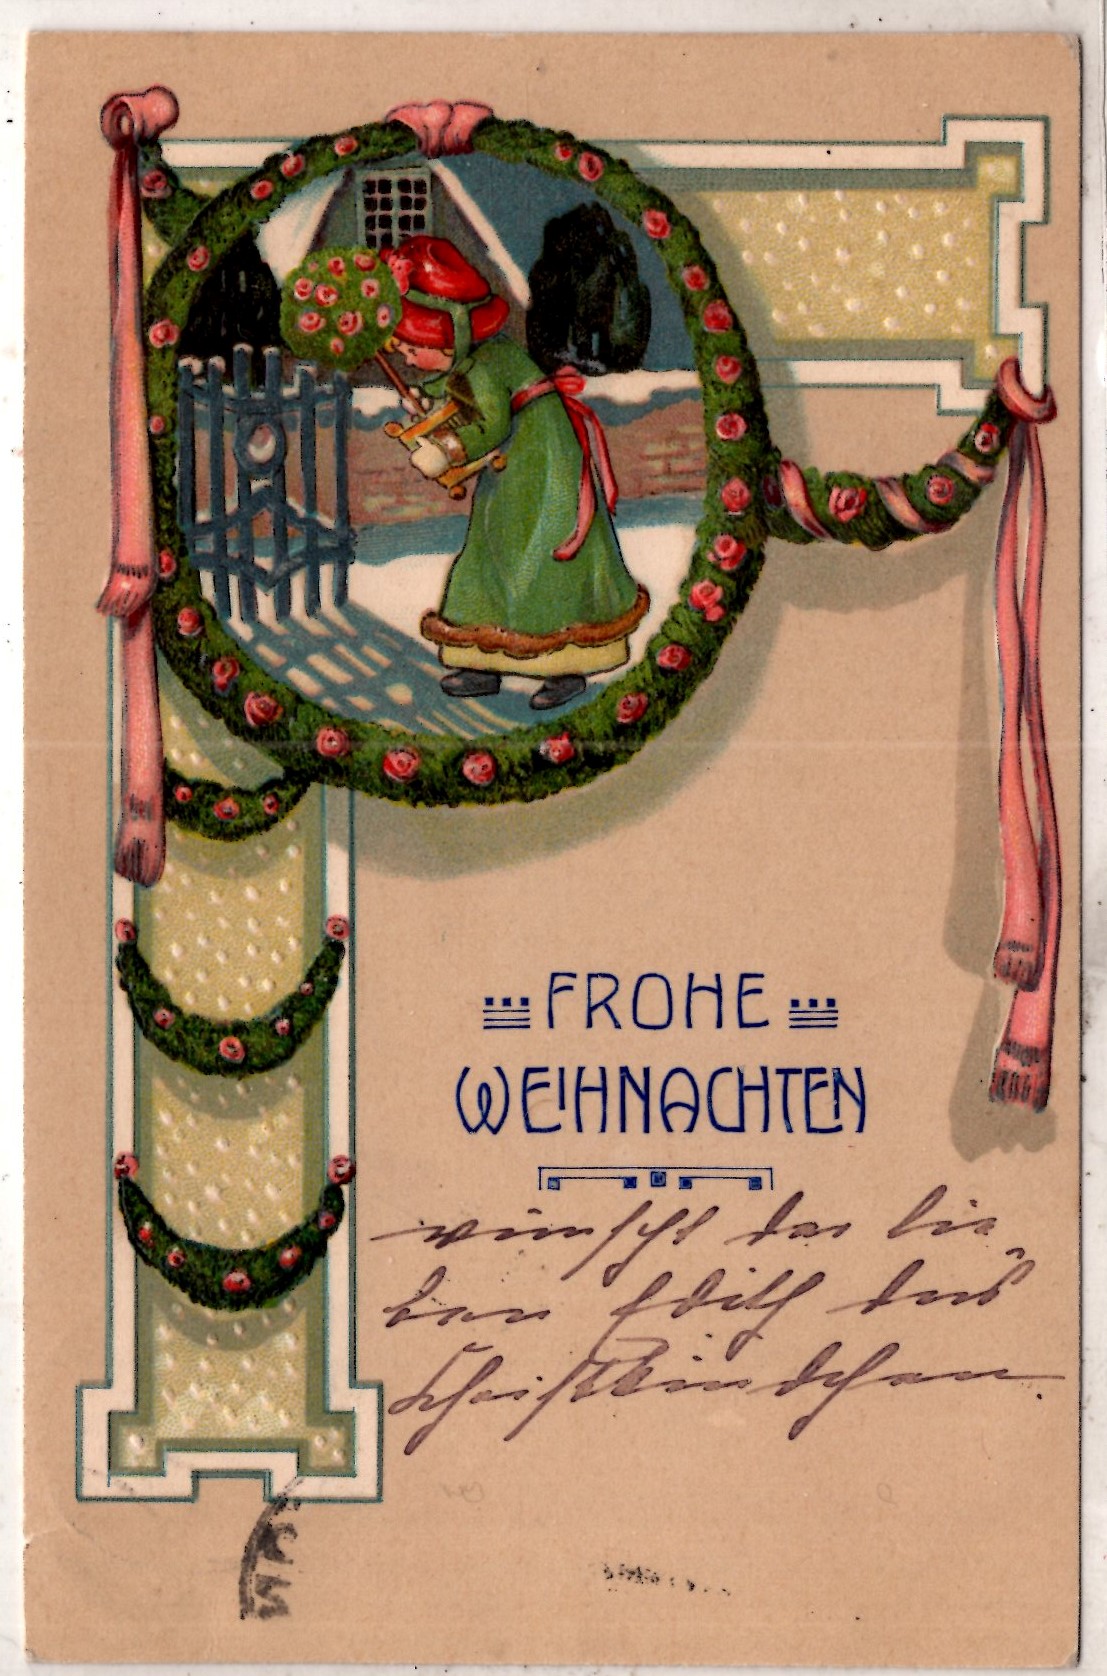 FROHE
WEIHNACHTEN
wünscht der lie-
ben Edith das
Christkindchen.